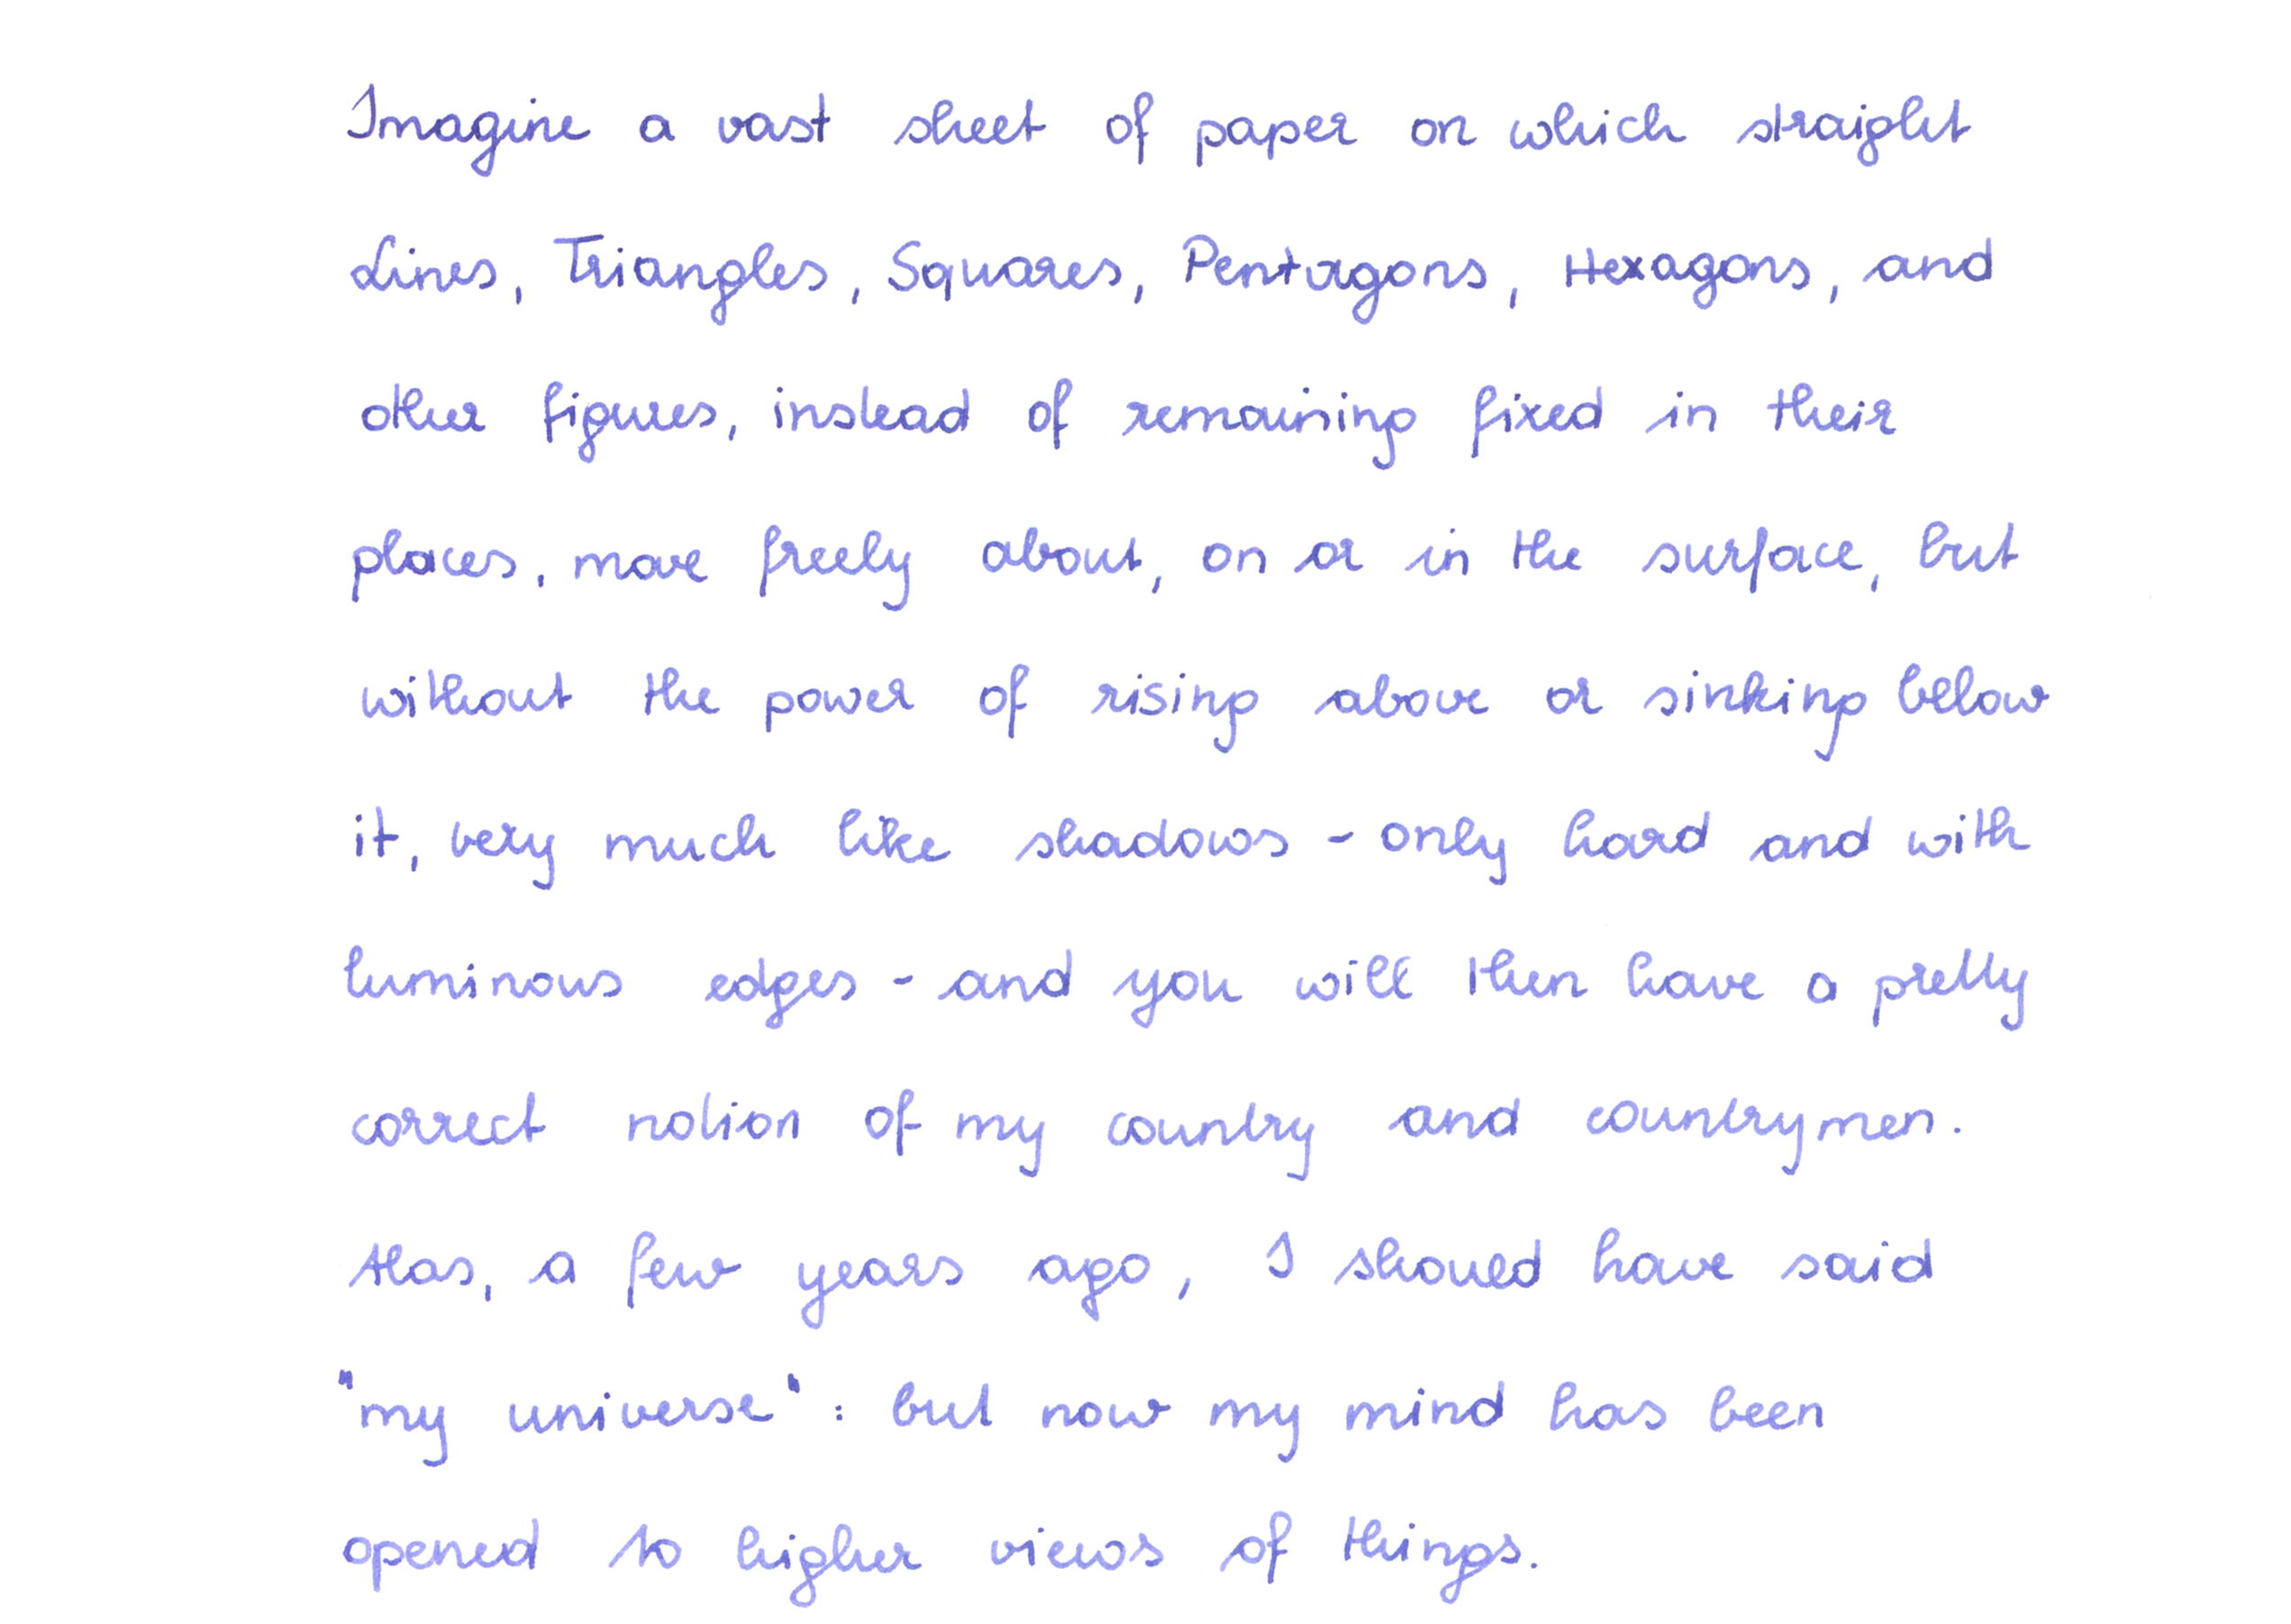 Imagine a vast sheet of paper on which straight
Lines, Triangles, Squares, Pentagons, Hexagons, and
other figures, instead of remaining fixed in their
places, move freely about, on or in the surface, but
without the power of rising above or sinking below
it, very much like shadows - only hard and with
luminous edges - and you will then have a pretty
correct notion of my country and countrymen.
Alas, a few years ago, I should have said
"my universe": but now my mind has been
opened to higher views of things.